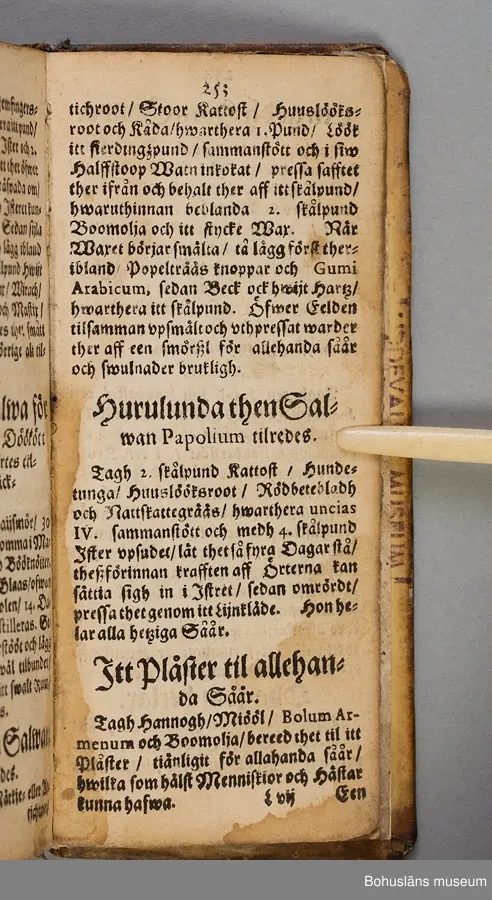 253
tichroot / Stoor Kattost / Huuslööks-
root och Kåda / hwarthera 1. Pund / Löök
itt fierdingzpund / sammanstött och i siw
Halffstoop Watn inkokat / pressa safftet
ther ifrån och behalt ther aff itt skålpund /
hwaruthinnan beblanda 2. skålpund
Boomolja och itt stycke Wax. När
Waxet börjar smälta / tå lägg först ther-
ibland Popelträäs knoppar och Gumi
Arabicum, sedan Beck och hwijt Hartz /
hwarthera itt skålpund. Öfwer Eelden
tilsamman vpsmält och vthpressat warder
ther aff een smörßl för allehanda såår
och swulnader brukligh.
Hurulunda then Sal-
wan Papolium tilredes.
Tagh 2. skålpund Kattost / Hunde-
tunga / Huuslööksroot / Rödbetebladh
och Nattskattegrääs / hwarthera uncias
IV. sammanstött och medh 4. skålpund
Ister vpsudet / låt thet så fyra Dagar stå /
theßförinnan krafften aff Örterna kan
sättia sigh in i Istret / sedan omrördt /
pressa thet genom itt Lijnkläde. Hon he-
lar alla hetziga Såår.
Itt Plåster til allehan-
da Såår.
Tagh Hannogh / Miööl / Bolum Ar-
menum och Boomolja / bereed thet til itt
Plåster / tiänligit för allahanda såår /
hwilka som hälst Menniskior och Hästar
kunna hafwa.
L vij Een
Bohusläns museum